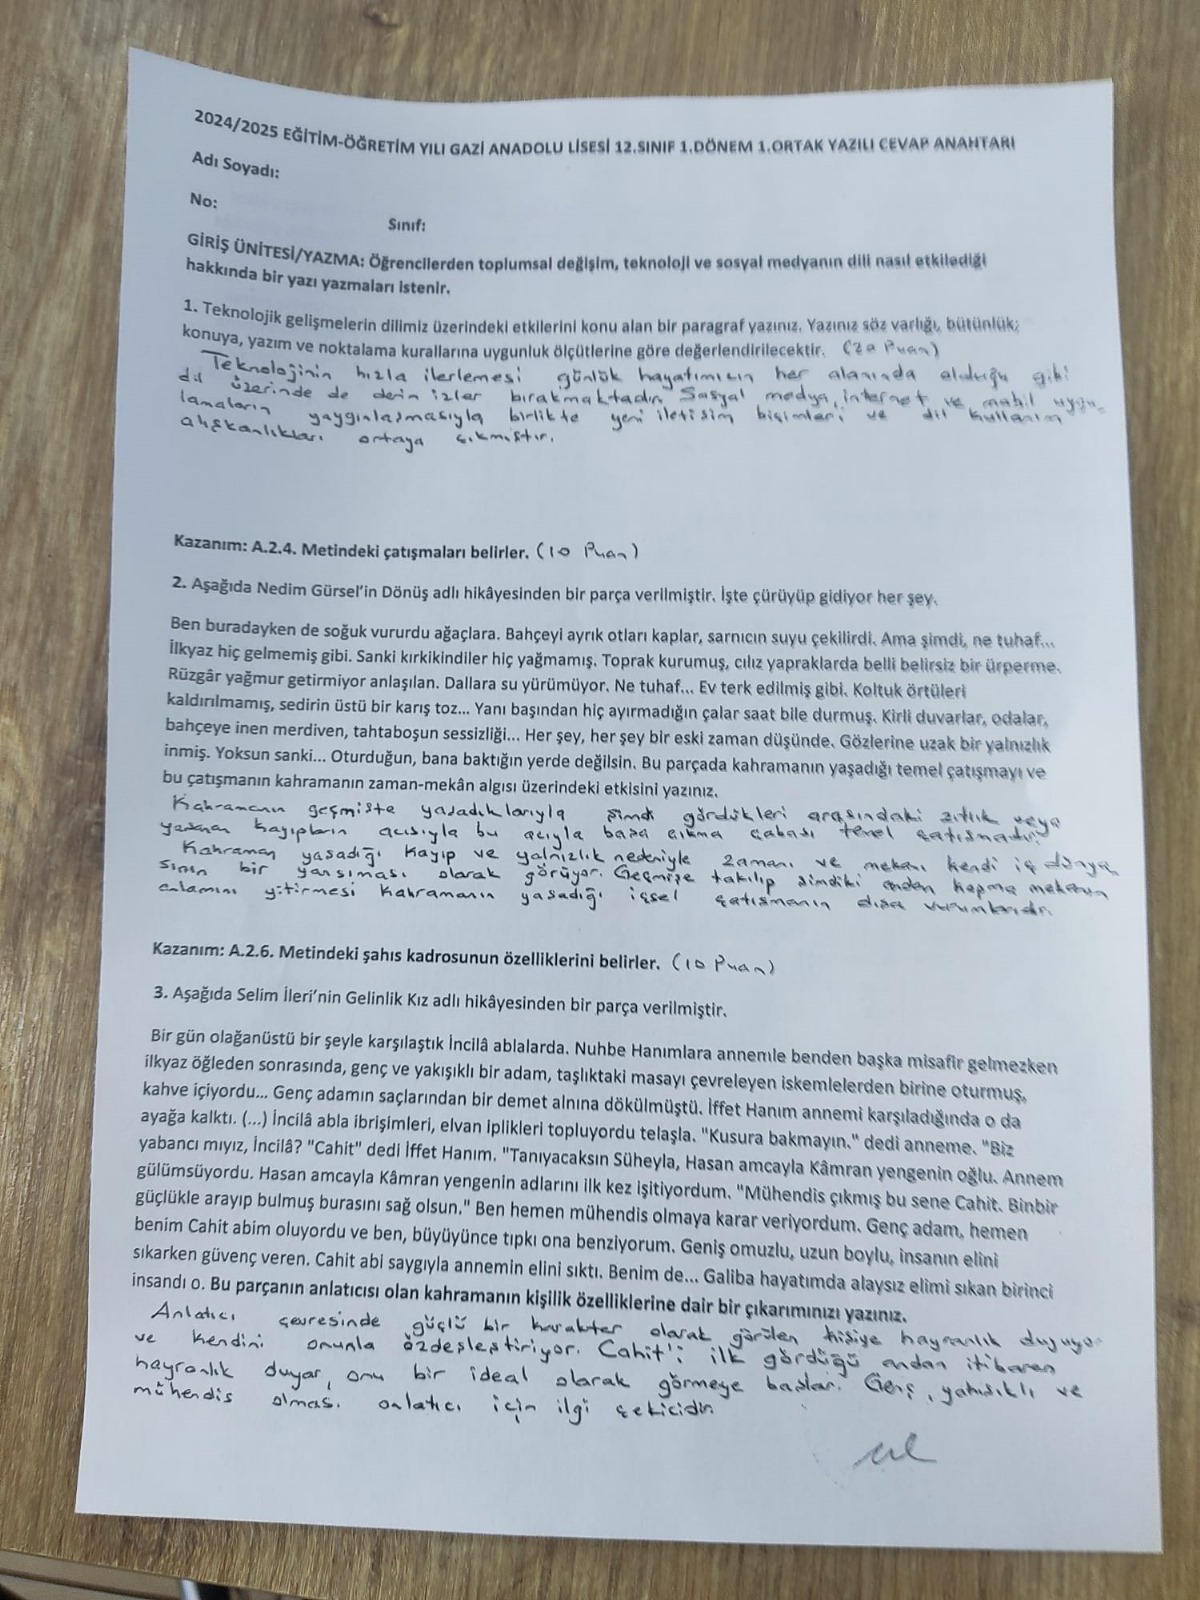 2024/2025 EĞİTİM-ÖĞRETİM YILI GAZİ ANADOLU LİSESİ 12.SINIF 1.DÖNEM 1.ORTAK YAZILI CEVAP ANAHTARI
Adı Soyadı:
No:
Sınıf:
GİRİŞ ÜNİTESİ/YAZMA: Öğrencilerden toplumsal değişim, teknoloji ve sosyal medyanın dili nasıl etkilediği
hakkında bir yazı yazmaları istenir.
1. Teknolojik gelişmelerin dilimiz üzerindeki etkilerini konu alan bir paragraf yazınız. Yazınız söz varlığı, bütünlük;
konuya, yazım ve noktalama kurallarına uygunluk ölçütlerine göre değerlendirilecektir. (20 Puan)
Teknolojinin hızla ilerlemesi günlük hayatımızın her alanında olduğu gibi
dil üzerinde de derin izler bırakmaktadır. Sosyal medya, internet ve mobil uygu-
lamaların yaygınlaşmasıyla birlikte yeni iletişim biçimleri ve dil kullanım
alışkanlıkları ortaya çıkmıştır.
Kazanım: A.2.4. Metindeki çatışmaları belirler. (10 Puan)
2. Aşağıda Nedim Gürsel'in Dönüş adlı hikâyesinden bir parça verilmiştir. İşte çürüyüp gidiyor her şey.
Ben buradayken de soğuk vururdu ağaçlara. Bahçeyi ayrık otları kaplar, sarnıcın suyu çekilirdi. Ama şimdi, ne tuhaf...
İlkyaz hiç gelmemiş gibi. Sanki kırkikindiler hiç yağmamış. Toprak kurumuş, cılız yapraklarda belli belirsiz bir ürperme.
Rüzgâr yağmur getirmiyor anlaşılan. Dallara su yürümüyor. Ne tuhaf... Ev terk edilmiş gibi. Koltuk örtüleri
kaldırılmamış, sedirin üstü bir karış toz... Yanı başından hiç ayırmadığın çalar saat bile durmuş. Kirli duvarlar, odalar,
bahçeye inen merdiven, tahtaboşun sessizliği... Her şey, her şey bir eski zaman düşünde. Gözlerine uzak bir yalnızlık
inmiş. Yoksun sanki... Oturduğun, bana baktığın yerde değilsin. Bu parçada kahramanın yaşadığı temel çatışmayı ve
bu çatışmanın kahramanın zaman-mekân algısı üzerindeki etkisini yazınız.
Kahramanın geçmişte yaşadıklarıyla şimdi gördükleri arasındaki zıtlık veya
yaşanan kayıpların acısıyla bu acıyla başa çıkma çabası temel çatışmadır.
Kahraman yaşadığı kayıp ve yalnızlık nedeniyle zamanı ve mekanı kendi iç dünya
sının bir yansıması olarak görüyor. Geçmişe takılıp şimdiki andan kopma mekanın
anlamını yitirmesi kahramanın yaşadığı içsel çatışmanın dışa vurumlarıdır.
Kazanım: A.2.6. Metindeki şahıs kadrosunun özelliklerini belirler. (10 Puan)
3. Aşağıda Selim İleri'nin Gelinlik Kız adlı hikâyesinden bir parça verilmiştir.
Bir gün olağanüstü bir şeyle karşılaştık İncilâ ablalarda. Nuhbe Hanımlara annemle benden başka misafir gelmezken
ilkyaz öğleden sonrasında, genç ve yakışıklı bir adam, taşlıktaki masayı çevreleyen iskemlelerden birine oturmuş,
kahve içiyordu... Genç adamın saçlarından bir demet alnına dökülmüştü. İffet Hanım annemi karşıladığında o da
ayağa kalktı. (...) İncilâ abla ibrişimleri, elvan iplikleri topluyordu telaşla. "Kusura bakmayın." dedi anneme. "Biz
yabancı mıyız, İncilâ? "Cahit" dedi İffet Hanım. "Tanıyacaksın Süheyla, Hasan amcayla Kâmran yengenin oğlu. Annem
gülümsüyordu. Hasan amcayla Kâmran yengenin adlarını ilk kez işitiyordum. "Mühendis çıkmış bu sene Cahit. Binbir
güçlükle arayıp bulmuş burasını sağ olsun." Ben hemen mühendis olmaya karar veriyordum. Genç adam, hemen
benim Cahit abim oluyordu ve ben, büyüyünce tıpkı ona benziyorum. Geniş omuzlu, uzun boylu, insanın elini
sıkarken güvenç veren. Cahit abi saygıyla annemin elini sıktı. Benim de... Galiba hayatımda alaysız elimi sıkan birinci
insandı o. Bu parçanın anlatıcısı olan kahramanın kişilik özelliklerine dair bir çıkarımınızı yazınız.
Anlatıcı çevresinde güçlü bir karakter olarak görülen kişiye hayranlık duyuyor
ve kendini onunla özdeşleştiriyor. Cahit'i ilk gördüğü andan itibaren
hayranlık duyar, onu bir ideal olarak görmeye başlar. Genç, yakışıklı ve
mühendis olması anlatıcı için ilgi çekicidir.